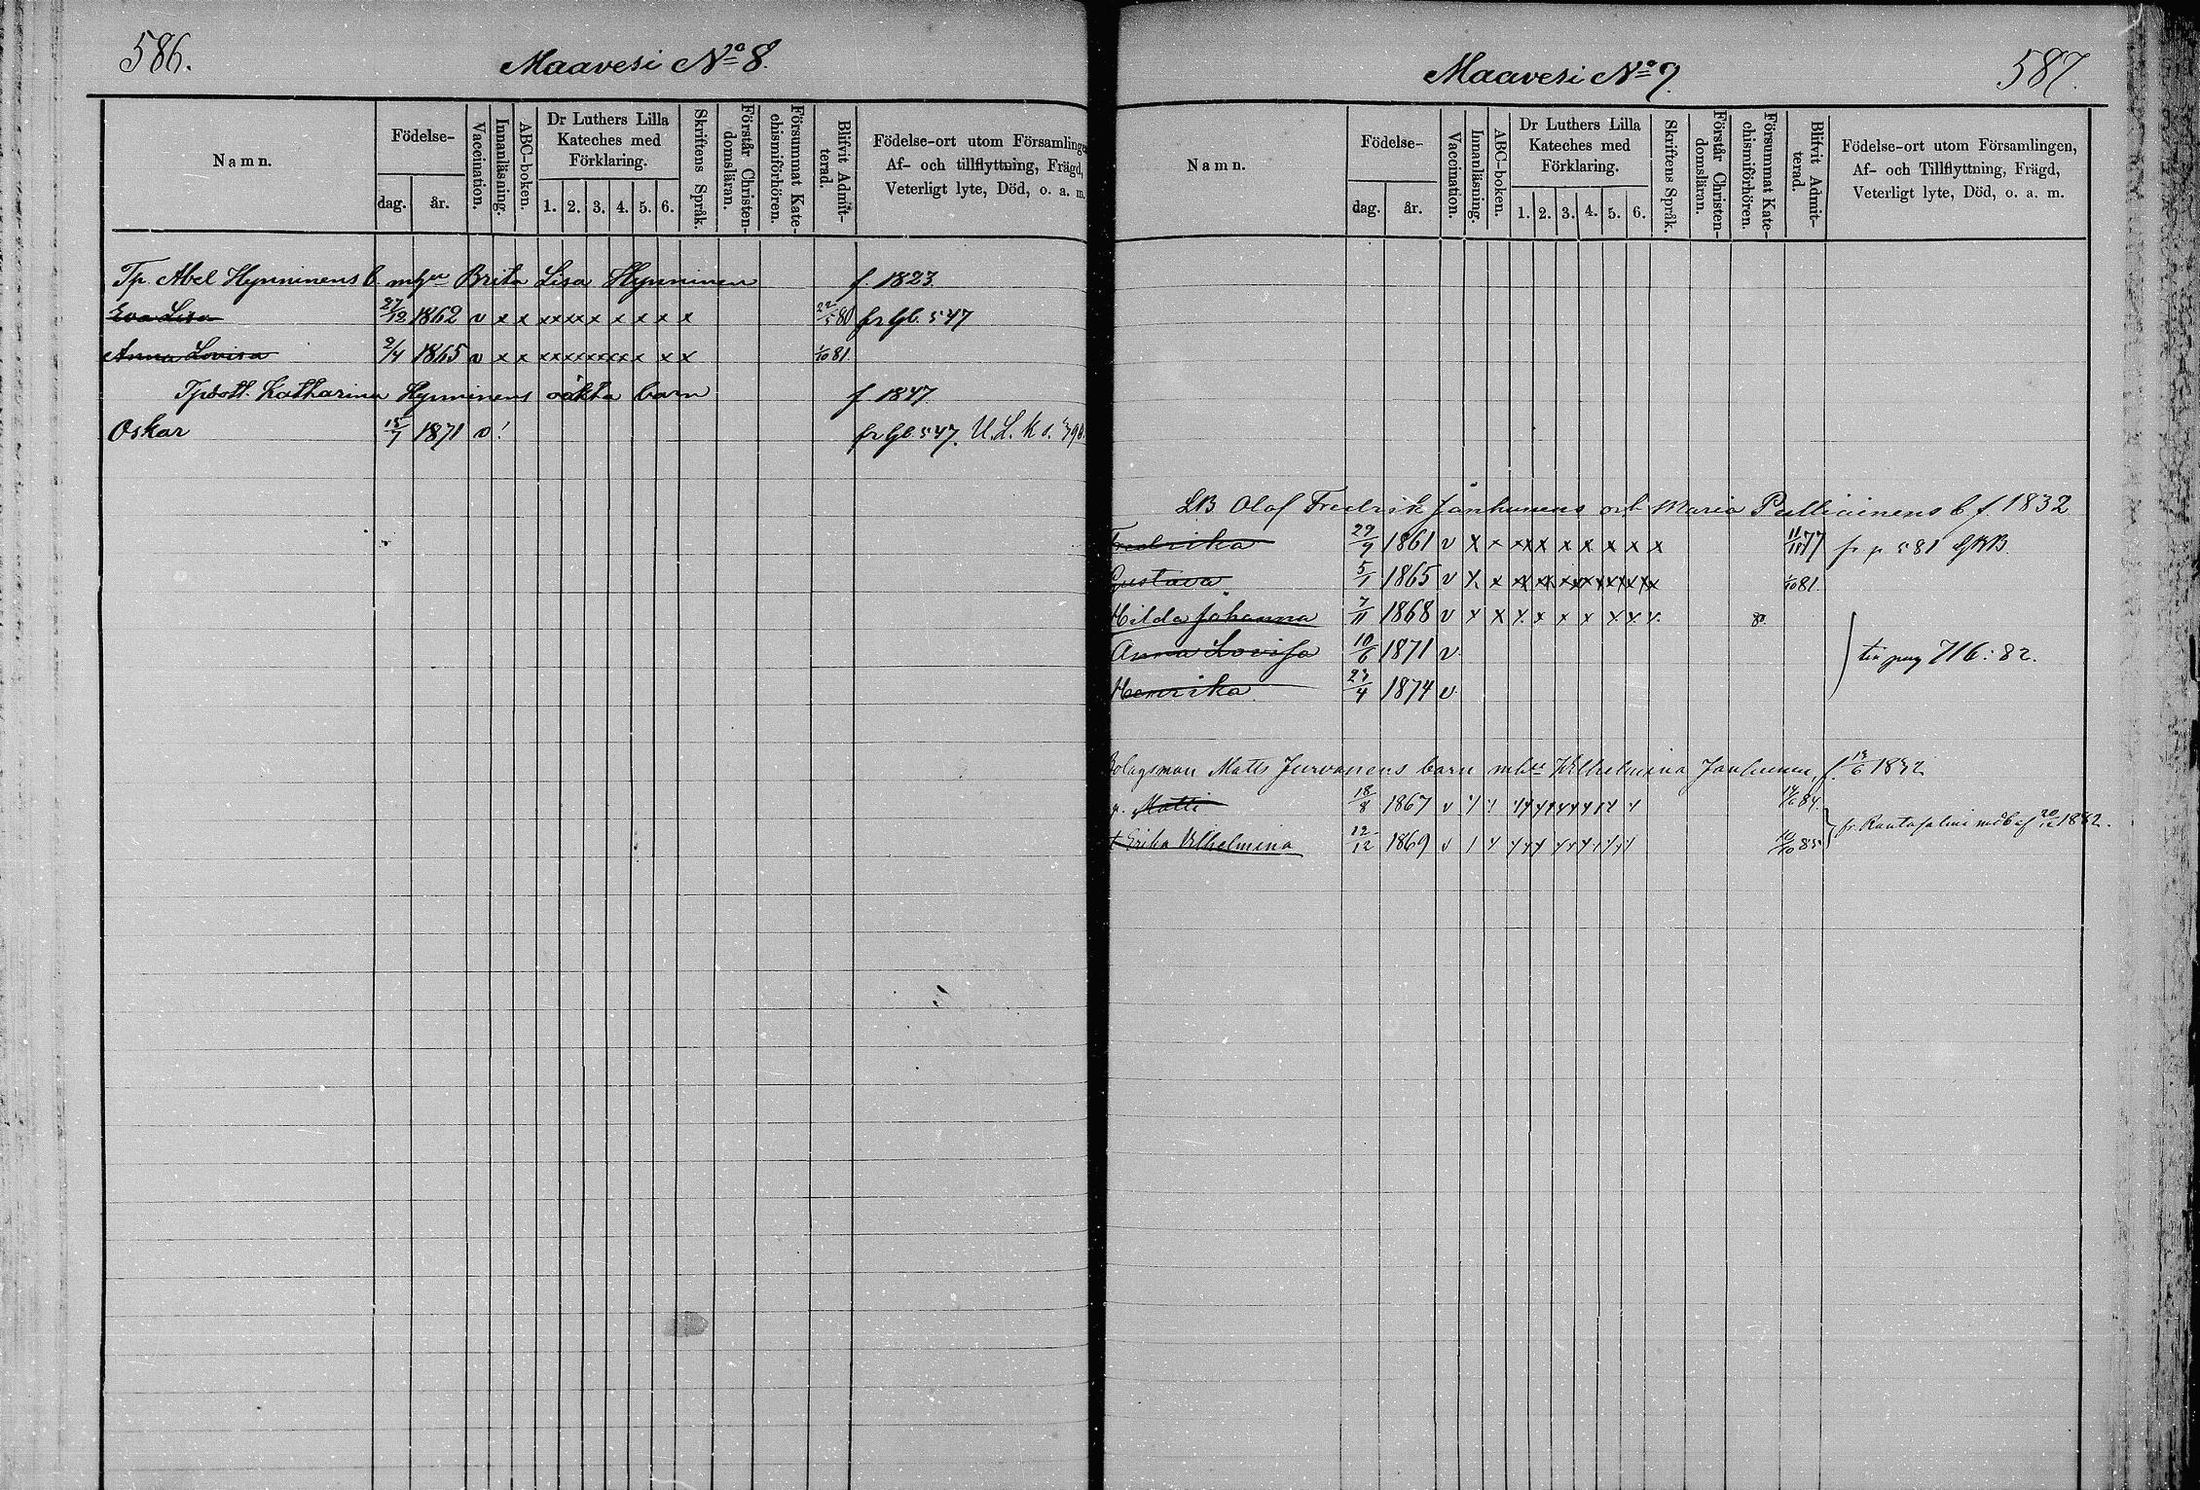 586.
Maavesi No 8.
Namn.
Födelse-
dag.
år.
Vaccination.
Innanläsning.
ABC-boken.
Dr Luthers Lilla
Kateches med
Förklaring.
1. 2. 3. 4. 5. 6.
Skriftens Språk.
Förstår Christen-
domsläran.
Försummat Kate-
chismiförhören.
Blifvit Admit-
terad.
Födelse-ort utom Församlingen
Af- och tillflyttning, Frägd,
Veterligt lyte, Död, o. a. m.
Tp. Abel Hynninens b. Brita Lisa Hynninen f. 1823
Eva Lisa 27/12 1862 v x x x x x x x x x x x 22/5 80 fr Gb. 547
Anna Lovisa 2/4 1865 v x x x x x x x x x x x x 1/10 81
Katharina Hynninens oäkta barn f 1847
Oskar 15/7 1871 v! fr Gb. 547.
587.
Maavesi No 9.
Namn.
Födelse-
dag.
år.
Vaccination.
Innanläsning.
ABC-boken.
Dr Luthers Lilla
Kateches med
Förklaring.
1. 2. 3. 4. 5. 6.
Skriftens Språk.
Förstår Christen-
domsläran.
Försummat Kate-
chismiförhören.
Blifvit Admit-
terad.
Födelse-ort utom Församlingen,
Af- och Tillflyttning, Frägd,
Veterligt lyte, Död, o. a. m.
LB Olof Fredrik Jänhunens och Maria Pulliainens b f. 1832
Fredrika 29/9 1861 v x x x x x x x x x x 11/11 77 fr p 581
Gustava 5/1 1865 v x x x x x x x x x x x x 1/10 81.
Hilda Johanna 7/11 1868 v x x x x x x x x x 80
Anna Lovisa 10/6 1871 v
till pag 716: 82.
Henrika 23/4 1874 v
Bolagsman Matts Jurvanens barn Wilhelmina Janhunen, f. 1832
Matti 18/8 1867 v 84.
fr. Rantasalmi 20/12 1882.
Erika Vilhelmina 12/12 1869 v 10/10 85